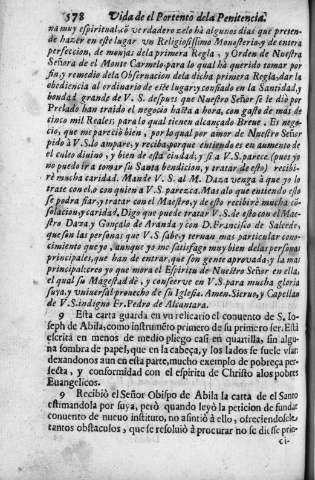 578 Vida de el Portento de la Penitencia.
na muy espiritual, cō verdadero zelo hà algunos dias que preten-
de hazer en este lugar vn Religiosissimo Monasterio, y de entera
perfeccion, de monjas de la primera Regla, y Orden de Nuestra
Señora de el Monte Carmelo: para lo qual hà querido tomar por
fin, y remedio de la Obseruacion de la dicha primera Regla, dar la
obediencia al ordinario de este lugar; y confiado en la Santidad, y
boudad grande de V. S. despues que Nuestro Señor se le diò por
Prelado han traido el negocio hasta a hora, con gasto de mas de
cinco mil Reales, para lo qual tienen alcançado Breue. Es nego-
cio, que me pareciò bien, por lo qual por amor de Nuestro Señor
pido à V. S. lo ampare, y reciba, porque entiendo es en aumento de
el culto diuino, y bien de esta ciudad; y si a V. S. parece (pues yo
no puedo ir a tomar su Santa bendicion, y tratar de esto) recibi-
rè mucha caridad. Mande V. S. al M. Daza venga à que yo lo
trate con el, o con quien a V. S. parezca. Mas a lo que entiendo esto
se podra fiar, y tratar con el Maestro, y de esto recibirè mucha cō-
solacion, y caridad. Digo que puede tratar V. S. de esto con el Maes-
tro Daza, y Gonçalo de Aranda, y con D. Francisco de Salcedo,
que son las personas que V. S. sabe, y ternan mas particular cono-
cimiento que yo, aunque yo me satisfago muy bien de las personas
principales, que han de entrar, que son gente aprouada, y la mas
principal creo yo que mora el Espiritu de Nuestro Señor en ella,
el qual su Magestad dè, y conserve en V. S. para mucha gloria
suya, y vniuersal prouecho de su Iglesia. Amen. Sieruo, y Capellan
de V. S. indigno Fr. Pedro de Alcantara.
9 Esta carta guarda en vn relicario el conuento de S. Io-
seph de Abila, como instrumēto primero de su primero ser. Està
escrita en menos de medio pliego casi en quartilla, sin algu-
na sombra de papel, que en la cabeça, y los lados se suele vsar
dexandonos aun en esta parte, mucho exemplo de pobreça per-
fecta, y conformidad con el espiritu de Christo a los pobres
Euangelicos.
9 Recibiò el Señor Obispo de Abila la carta de el Santo
estimandola por suya, però quando leyò la peticion de fundar
conuento de nueuo instituto, no asintiò à ello, ofreciendosele
tantos obstaculos, que se resoluiò à procurar no se diesse prin-
ci-